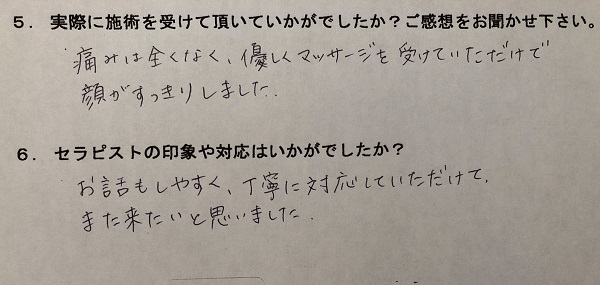 5． 実際に施術を受けて頂いていかがでしたか？ご感想をお聞かせ下さい。
痛みは全くなく、優しくマッサージを受けていただけで
顔がすっきりしました．
6． セラピストの印象や対応はいかがでしたか？
お話もしやすく、丁寧に対応していただけて、
また来たいと思いました．